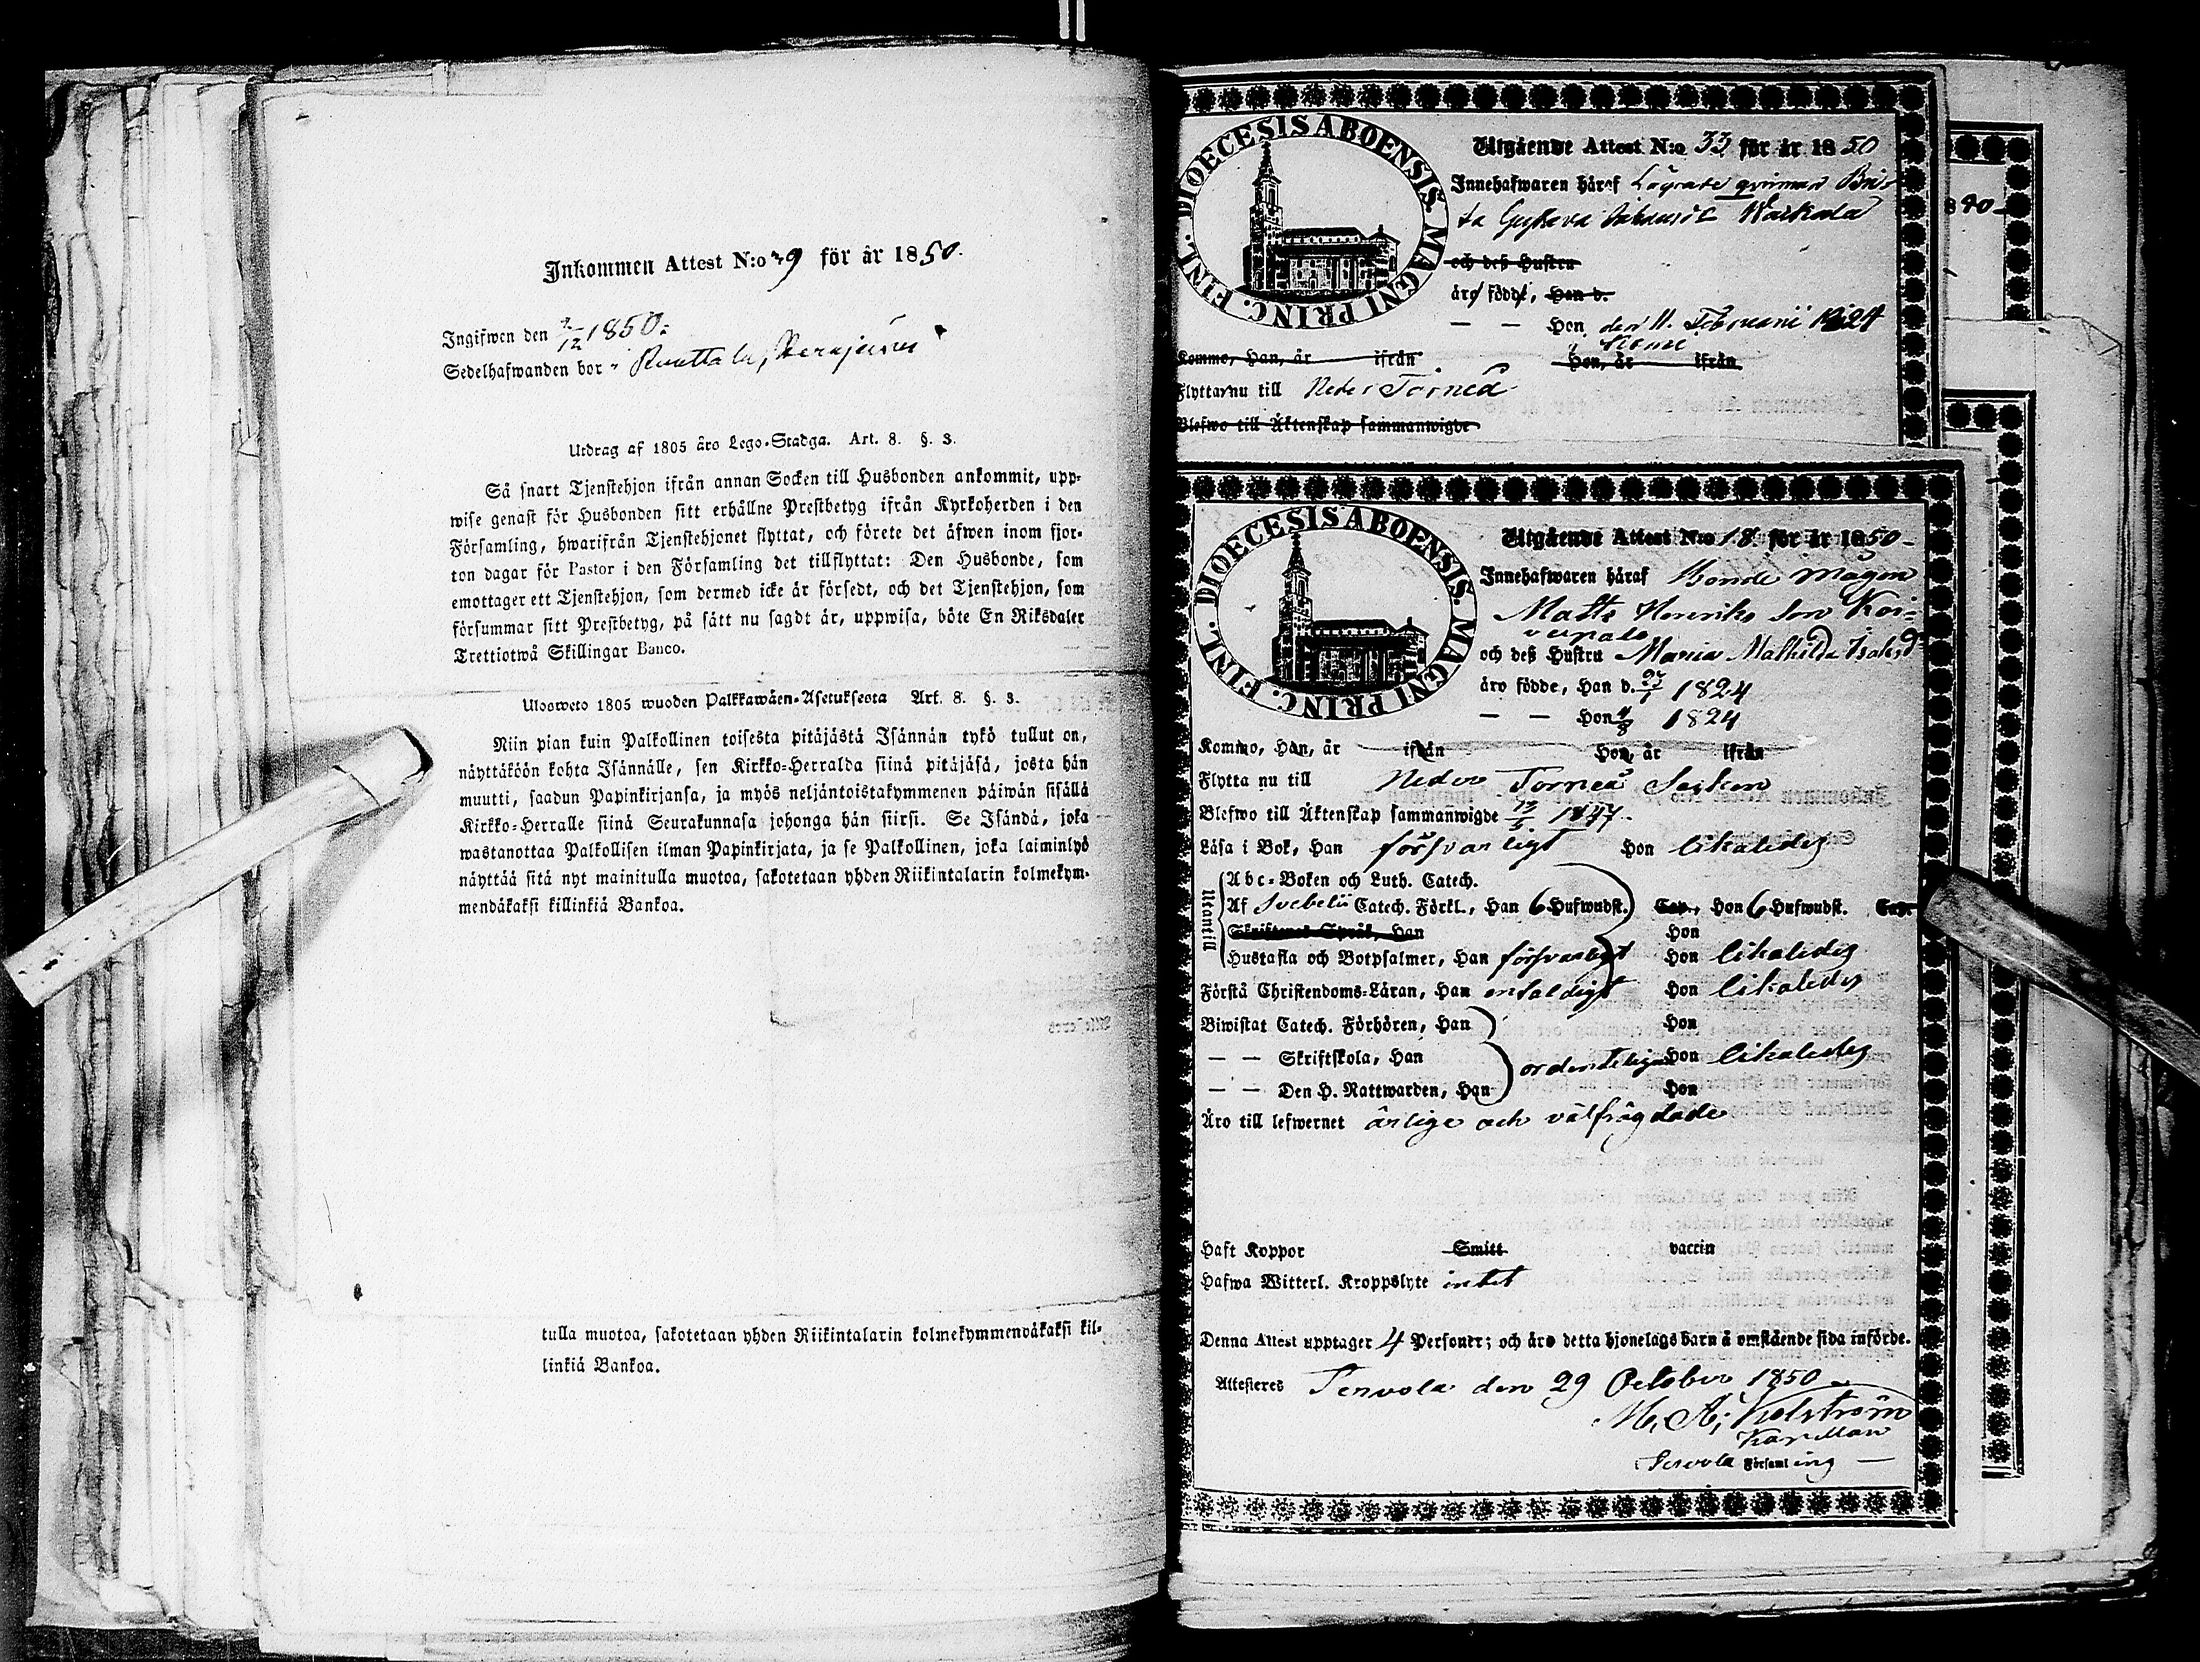 Inkommen Attest N:o 49 för år 1850.
Ingifwen den 2/12 1850.
Sedelhafwanden bor i Ruottala,
Utdrag af 1805 års Lego-Stadga. Art. 8. §. 3.
Så snart Tjenstehjon ifrån annan Socken till Husbonden ankommit, upp-
wise genast för Husbonden sitt erhållne Prestbetyg ifrån Kyrkoherden i den
Församling, hwarifrån Tjenstehjonet flyttat, och förete det äfwen inom fjor-
ton dagar för Pastor i den Församling det tillflyttat: Den Husbonde, som
emottager ett Tjenstehjon, som dermed icke är försedt, och det Tjenstehjon, som
försummar sitt Prestbetyg, på sätt nu sagdt är, uppwisa, böte En Riksdaler
Trettiotwå Skillingar Banco.
Ulosweto 1805 wuoden Palkkawäen-Asetuksesta Art. 8. §. 3.
Niin pian kuin Palkollinen toisesta pitäjästä Isännän tykö tullut on,
näyttäköön kohta Isännälle, sen Kirkko-Herralda siinä pitäjäsä, josta hän
muutti, saadun Papinkirjansa, ja myös neljäntoistakymmenen päiwän sisällä
Kirkko-Herralle siinä Seurakunnasa johonga hän siirsi. Se Isändä, joka
wastanottaa Palkollisen ilman Papinkirjata, ja se Palkollinen, joka laiminlyö
näyttää sitä nyt mainitulla muotoa, sakotetaan yhden Riikintalarin kolmekym-
mendäkaksi killinkiä Bankoa.
tulla muotoa, sakotetaan yhden Riikintalarin kolmekymmendäkaksi kil-
linkiä Bankoa.
DIOECESIS ABOENSIS. MAGNI PRINC. FINL.
Utgående Attest N:o 33 för år 1850
Innehafwaren häraf Lägrade qvinnan Bri-
ta Gustava
och deß Hustru
äro född, Han d.
— — Hon den 11. Februarii 1824
Kommo, Han, år ifrån Hon, år ifrån
Flytta nu till Neder Torneå
Blefwo till Äktenskap sammanwigde
1840
DIOECESIS ABOENSIS. MAGNI PRINC. FINL.
Utgående Attest N:o 18. för år 1850
Innehafwaren häraf Bonde mågen
Matts Henriks son Koi-
vupalo
och deß Hustru Maria Mathilda Isaksd
äro födde, Han d. 27/1 1824
— — Hon 4/8 1824
Kommo, Han, år ifrån Hon, år ifrån
Flytta nu till Neder Torneå Socken
Blefwo till Äktenskap sammanwigde 1847
Läsa i Bok, Han försvarligt Hon likaledes
Utantill
Abc-Boken och Luth. Catech.
Af Svebelii Catech. Förkl., Han 6 Hufwudst. Cap., Hon 6 Hufwudst. Cap.
Skriftenes Språk, Han Hon
Hustafla och Botpsalmer, Han försvarligt Hon likaledes
Förstå Christendoms-Läran, Han enfaldigt Hon likaledes
Biwistat Catech. Förhören, Han Hon
— — Skriftskola, Han ordenteligen Hon likaledes
— — Den H. Nattwarden, Han Hon
Äro till lefwernet ärlige och välfrägdade
Haft Koppor Smitt vaccin
Hafwa Witterl. Kroppslyte intet
Denna Attest upptager 4 Personer; och äro detta hjonelags barn å omstående sida införde.
Attesteres Tervola den 29 October 1850
M. A. Holström
Kapellan
Tervola Församling